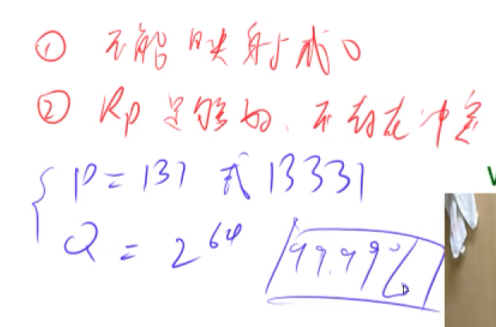 ① 不能映射成0
② Rp足够好、不存在冲突
P = 131 或 13331
Q = 2^64 99.99%